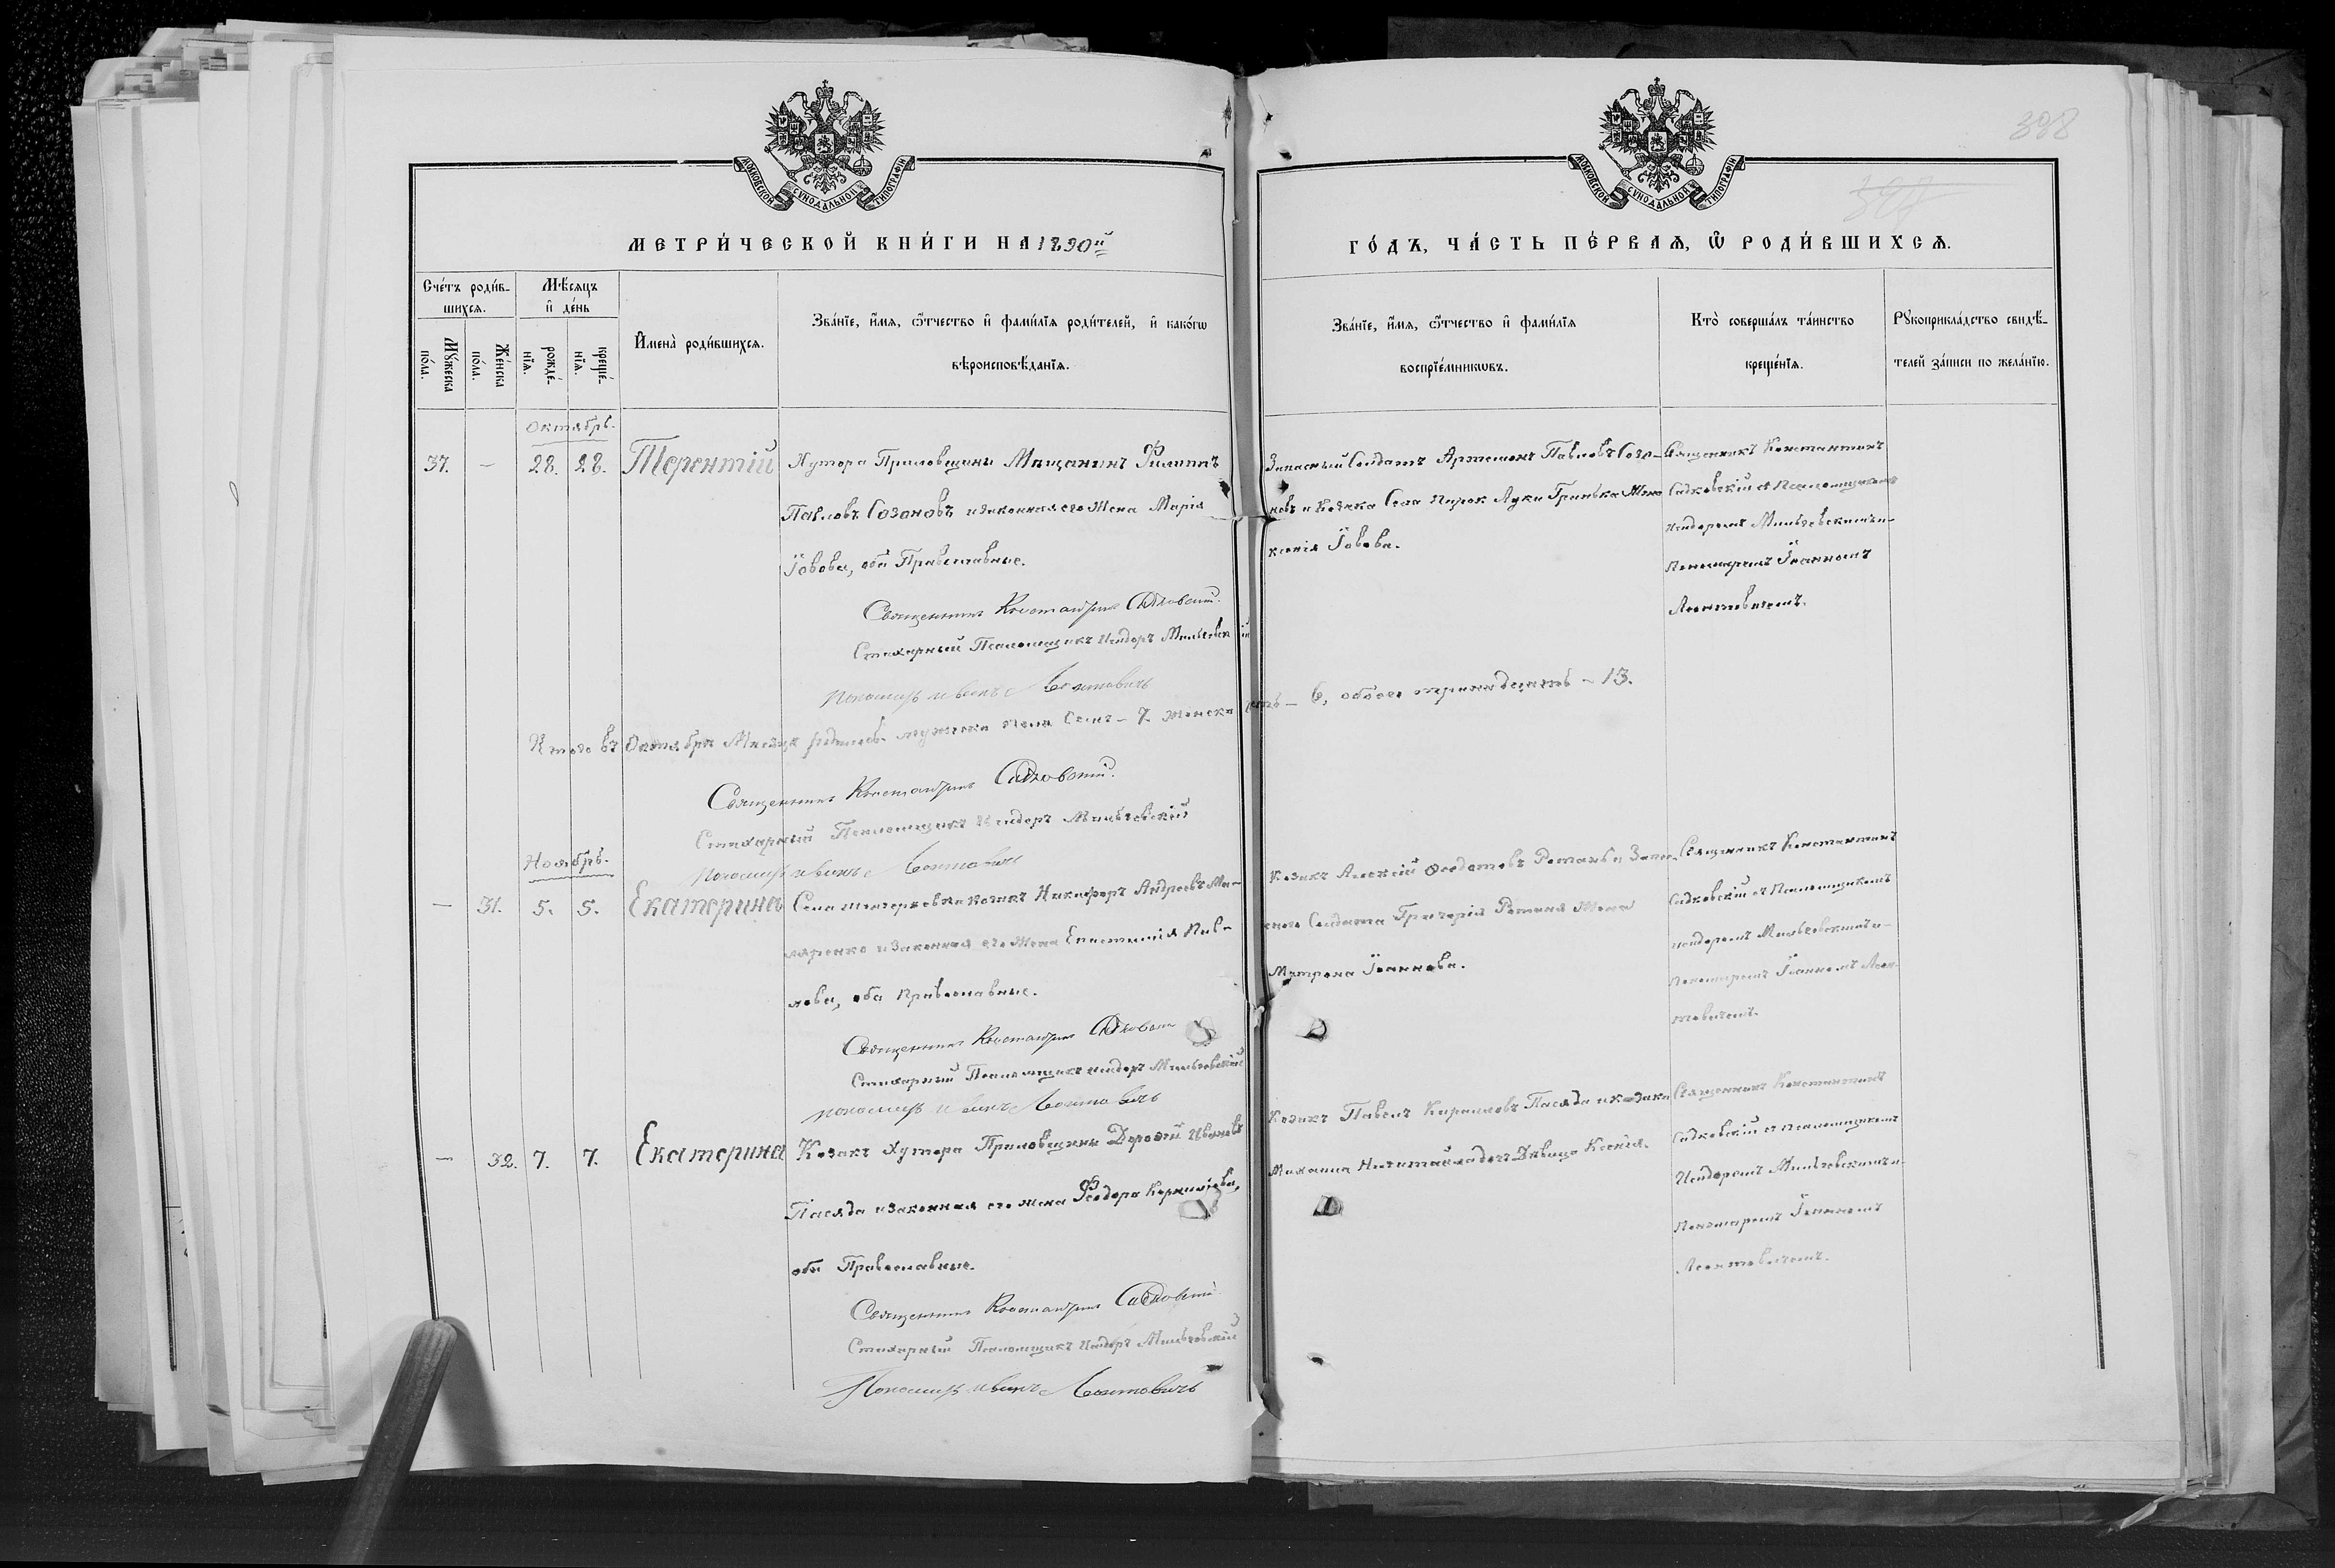 388
МОСКОВСКОЙ СѴНОДАЛЬНОЙ ТИПОГРАФІИ
МОСКОВСКОЙ СѴНОДАЛЬНОЙ ТИПОГРАФІИ
МЕТРИ́ЧЕСКОЙ КНИ́ГИ НА 1890й
ГО́ДЪ, ЧА́СТЬ ПЕ́РВАѦ, Ѡ҆ РОДИ́ВШИХСѦ.
Сче́тъ роди́в-
шихсѧ.
Мѣ́сѧцъ
и҆ де́нь
Мꙋ́жеска
по́ла.
Же́нска
по́ла.
рожде́-
нїѧ.
креще́-
нїѧ.
И҆мена̀ роди́вшихсѧ.
Зва́нїе, и҆́мѧ, ѻ҆́тчество и҆ фами́лїѧ роди́телей, и҆ како́гѡ
вѣроисповѣ́данїѧ.
Зва́нїе, и҆́мѧ, ѻ҆́тчество и҆ фами́лїѧ
воспрїе́мникѡвъ.
Кто̀ соверша́лъ та́инство
креще́нїѧ.
Рꙋкоприкла́дство свидѣ́-
телей за́писи по жела́нїю.
Октябрь.
37. — 28. 28. Терентій
Хутора Приловщины Мѣщанинъ Филиппъ
Павловъ Созановъ и законная его жена Марія
Іовова, оба Православные.
Священникъ Константинъ Садковскій.
Стихарный Псаломщикъ Исидоръ Мильчевскій
Пономарь Иванъ Леонтовичъ
Запасный Солдатъ Артемонъ Павловъ Созо-
новъ и козака Села Луки Гринька жена
Ксенія Іовова.
Священникъ Константинъ
Садковскій съ Псаломщикомъ
Исидоромъ Мильчевскимъ и
Пономаремъ Іоанномъ
Леонтовичемъ.
Итого въ Октябрѣ Мѣсяцѣ родилось мужеска пола Семь — 7. женска — 6, обоего тринадцать — 13.
Священникъ Константинъ Садковскій.
Стихарный Псаломщикъ Исидоръ Мильчевскій
Пономарь Иванъ Леонтовичъ
Ноябрь.
— 31. 5. 5. Екатерина
Села козакъ Никифоръ Андреевъ
и законная его жена Епистимія Пав-
лова, оба православные.
Священникъ Константинъ Садковскій
Стихарный Псаломщикъ Исидоръ Мильчевскій
Пономарь Иванъ Леонтовичъ
Козакъ Алексій Ѳедотовъ и Запас-
наго Солдата Григорія жена
Матрона Іоаннова.
Священникъ Константинъ
Садковскій съ Псаломщикомъ
Исидоромъ Мильчевскимъ и
Пономаремъ Іоанномъ Леон-
товичемъ.
— 32. 7. 7. Екатерина
Козакъ Хутора Приловщины Дороѳей Ивановъ
Пасяда и законная его жена Ѳеодора Корнилова,
оба Православные.
Священникъ Константинъ Садковскій
Стихарный Псаломщикъ Исидоръ Мильчевскій
Пономарь Иванъ Леонтовичъ
Козакъ Павелъ Кирилловъ Пасяда и козака
Михаила дочь Дѣвица Ксенія.
Священникъ Константинъ
Садковскій съ псаломщикомъ
Исидоромъ Мильчевскимъ и
Пономаремъ Іоанномъ
Леонтовичемъ.